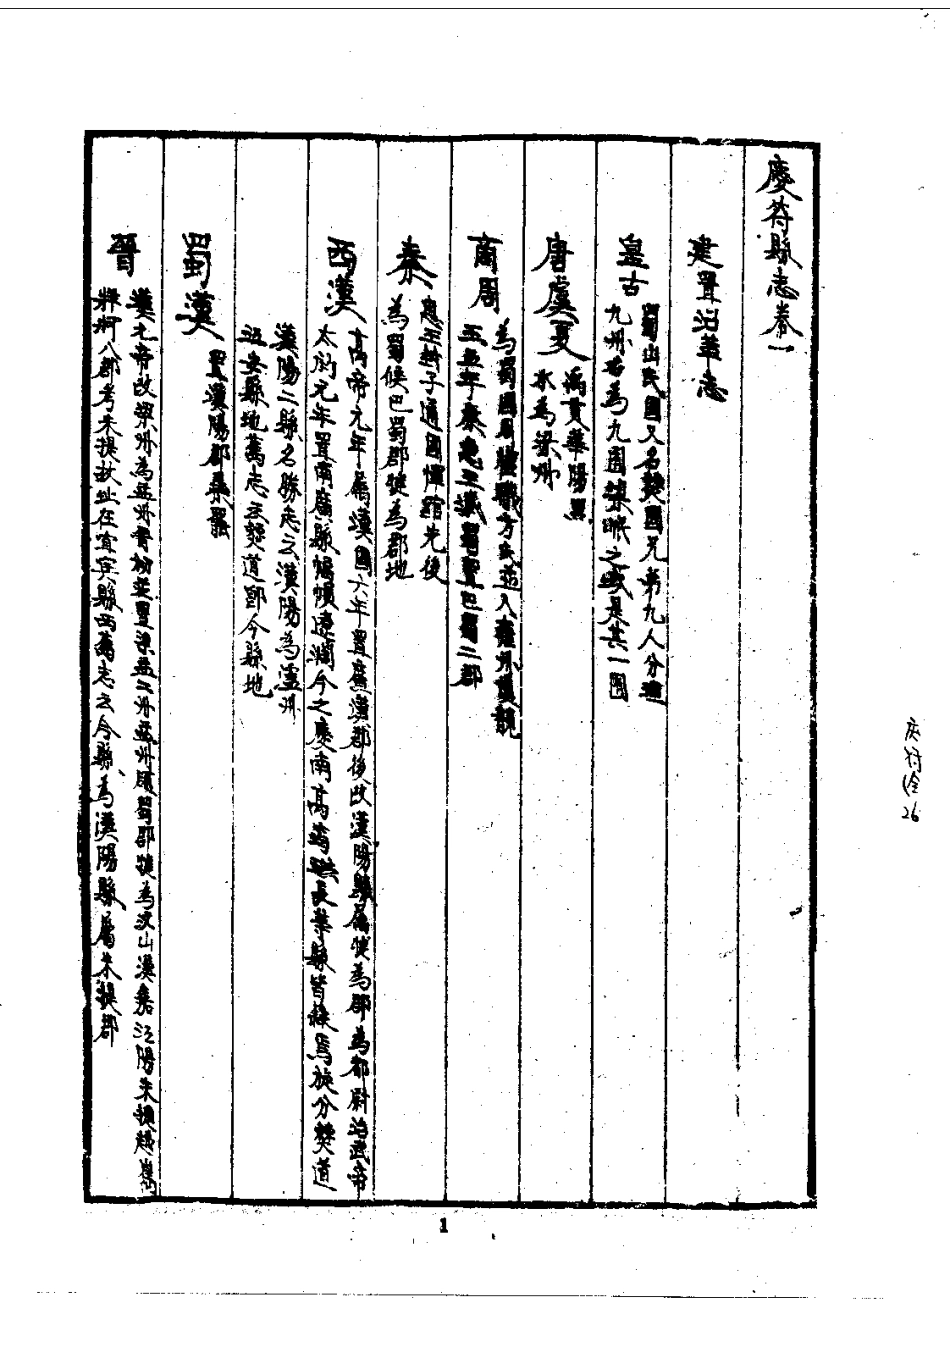 慶符縣志卷一
建置沿革志
盤古
蜀山氏國又名僰國兄弟九人分理
九州各為九囿梁岷之域是其一囿
唐虞夏
禹貢華陽黑
水為梁州
商周
為蜀國周禮職方氏並入雍州慎靚
王五年秦惠王滅蜀置巴蜀二郡
秦
惠王封子通國惲綰先後
為蜀侯巴蜀郡犍為郡地
西漢
高帝元年屬漢國六年置廣漢郡後改漢陽縣屬犍為郡為都尉治武帝
太初元年置南廣縣幅幀遼濶今之慶南高筠珙長等縣皆隸焉旋分僰道
漢陽二縣名勝志云漢陽為瀘州
江安縣地舊志云僰道即今縣地
蜀漢
置漢陽郡尋罷
晉
漢元帝改梁州為益州晉初𡊮置梁益二州益州屬蜀郡犍為汶山漢嘉江陽朱提越嶲
牂牁八郡考朱提故址在宜賓縣西舊志云今縣為漢陽縣屬朱提郡
1
庆符全
26